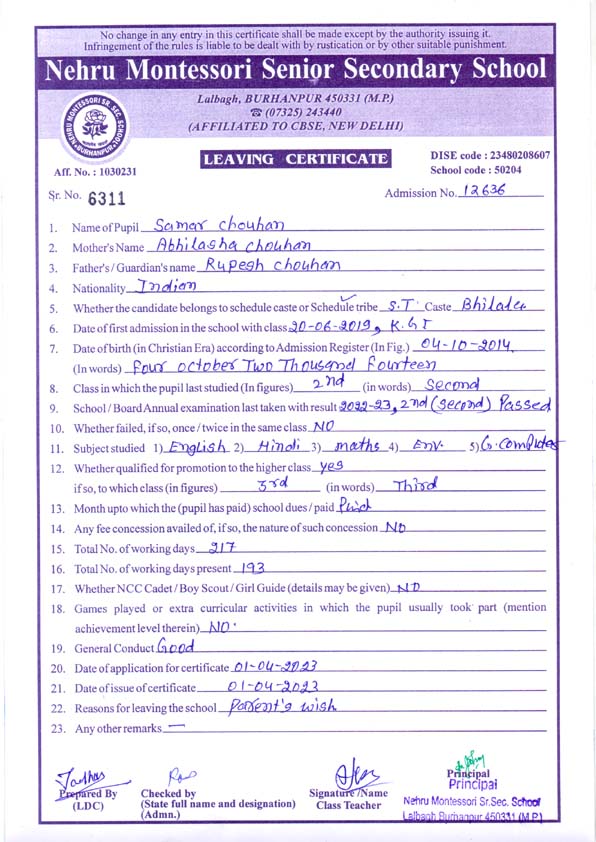 No change in any entry in this certificate shall be made except by the authority issuing it.
Infringement of the rules is liable to be dealt with by rustication or by other suitable punishment.
Nehru Montessori Senior Secondary School
NEHRU MONTESSORI SR. SEC. SCHOOL
BURHANPUR
Lalbagh, BURHANPUR 450331 (M.P.)
☎ (07325) 243440
(AFFILIATED TO CBSE, NEW DELHI)
LEAVING CERTIFICATE
DISE code : 23480208607
School code : 50204
Aff. No. : 1030231
Sr. No. 6311
Admission No. 12636
1. Name of Pupil Samar Chouhan
2. Mother's Name Abhilasha Chouhan
3. Father's / Guardian's name Rupesh Chouhan
4. Nationality Indian
5. Whether the candidate belongs to schedule caste or Schedule tribe S.T. Caste
6. Date of first admission in the school with class 20-06-2019, K.G I
7. Date of birth (in Christian Era) according to Admission Register (In Fig.) 04-10-2014
(In words) Four October Two Thousand Fourteen
8. Class in which the pupil last studied (In figures) 2nd (in words) Second
9. School / Board Annual examination last taken with result 2022-23, 2nd (Second) Passed
10. Whether failed, if so, once / twice in the same class NO
11. Subject studied 1) English 2) Hindi 3) maths 4) Env. 5) G. Computer
12. Whether qualified for promotion to the higher class yes
if so, to which class (in figures) 3rd (in words) Third
13. Month upto which the (pupil has paid) school dues / paid
14. Any fee concession availed of, if so, the nature of such concession NO
15. Total No. of working days 217
16. Total No. of working days present 193
17. Whether NCC Cadet / Boy Scout / Girl Guide (details may be given) NO
18. Games played or extra curricular activities in which the pupil usually took part (mention
achievement level therein) NO.
19. General Conduct Good
20. Date of application for certificate 01-04-2023
21. Date of issue of certificate 01-04-2023
22. Reasons for leaving the school Parent's wish
23. Any other remarks —
Prepared By
(LDC)
Checked by
(State full name and designation)
(Admn.)
Signature /Name
Class Teacher
Principal
Principal
Nehru Montessori Sr.Sec. School
Lalbagh Burhanpur 450331 (M.P.)